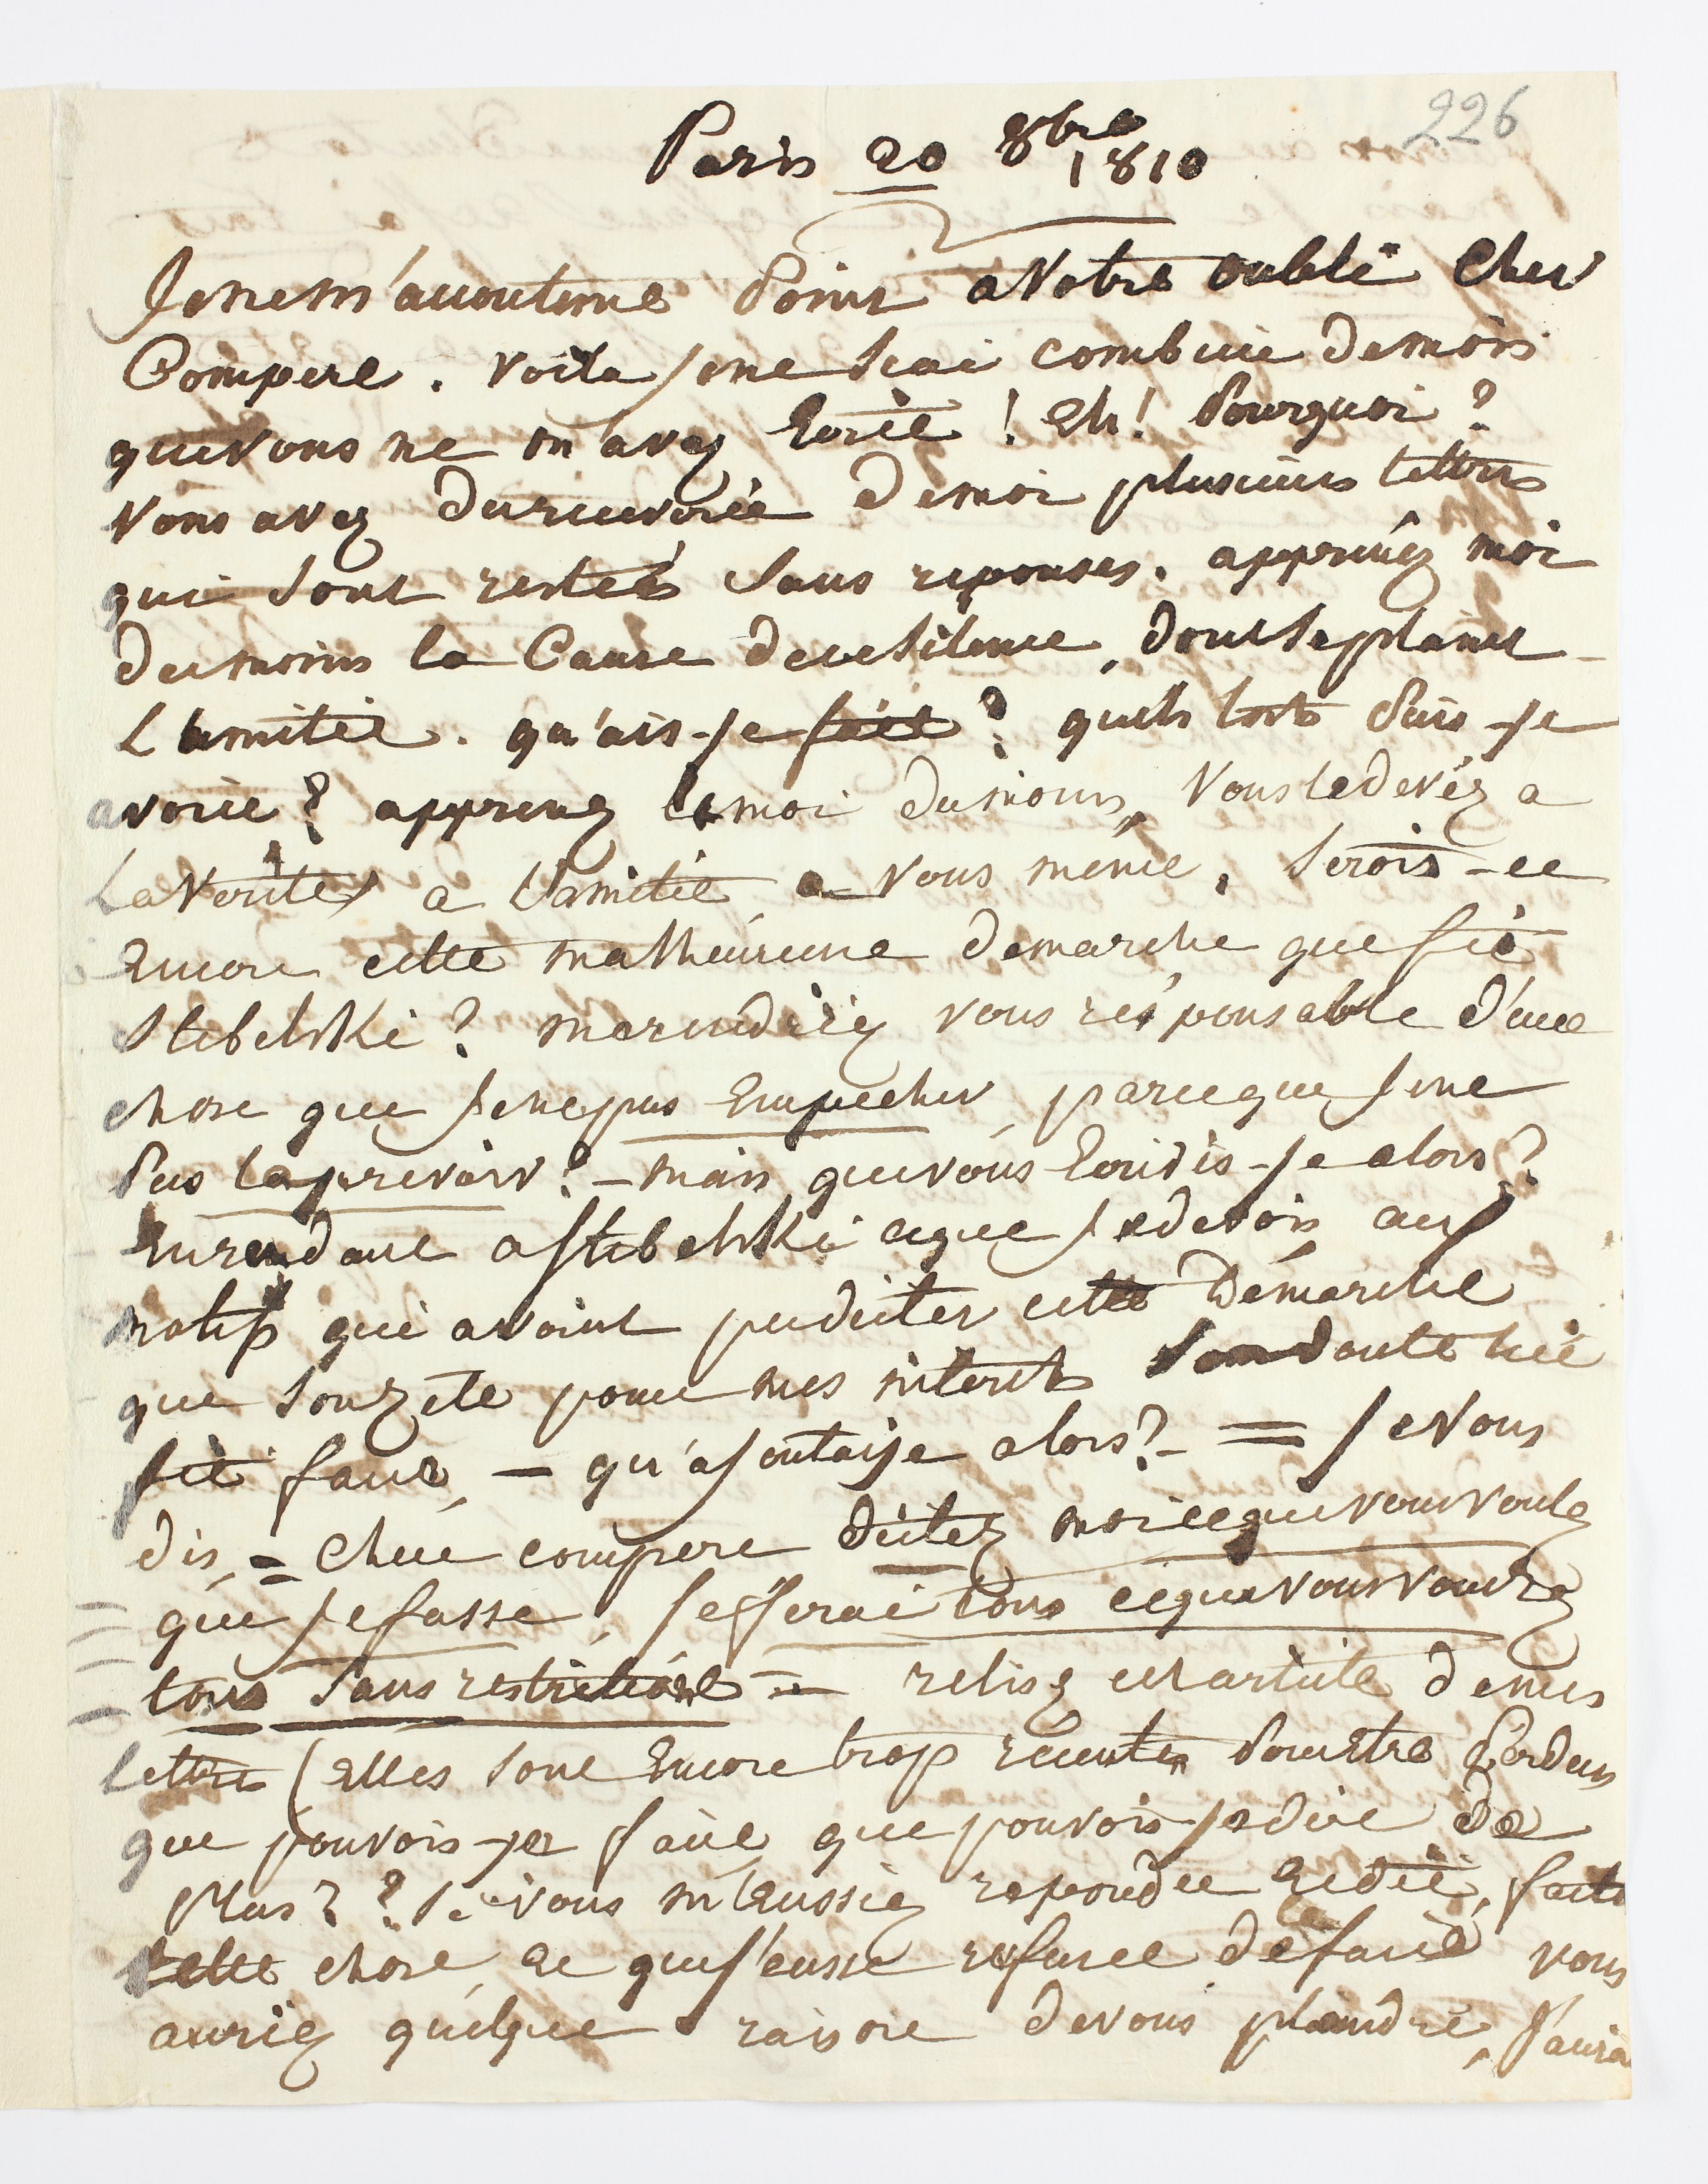 226
Paris 20 8bre 1810
Je ne m'accoutume point a Votre oubli Cher
Compere. Voila je ne scai combien de mois
que vous ne m'avez Ecrit ! Eh ! Pourquoi ?
Vous avez du recevoir de moi plusieurs lettres
qui sont restés sans reponses. apprenez moi
du moins la Cause de ce silence, dont se plaint
L'amitié. qu'ais-je fait ? quels torts puis-je
avoir ? apprenez le moi du moins, Vous le devez a
La Verité, a L'amitié, a Vous même. Serois-ce
Encore cette malheureuse demarche que fit
Stebelski ? me rendriez vous responsable d'une
chose que je ne pus Empecher, parceque je ne
Pus la prevoir ? – mais que vous Ecrivis-je alors ?
En rendant a Stebelski ce que je devois aux
motifs qui avoient pu dicter cette Démarche
que son zele pour mes interets sans doute lui
fit faire, – qu'ajoutai je alors ? – = je Vous
dis, = Cher compere dites moi ce que vous voulez
que je fasse, je fferai tous ce que vous voudrez
tous sans restriction = relisez cet article de mes
lettres (Elles sont Encore trop recentes pour Etre Perdues
que pouvois-je faire, que pouvois-je dire de
Plus ? ? Si vous m'Eussiez repondu Et dit, faites
telle chose, Et que j'eusse refusé de faire, vous
auriez quelque raison de vous plaindre, j'aurai